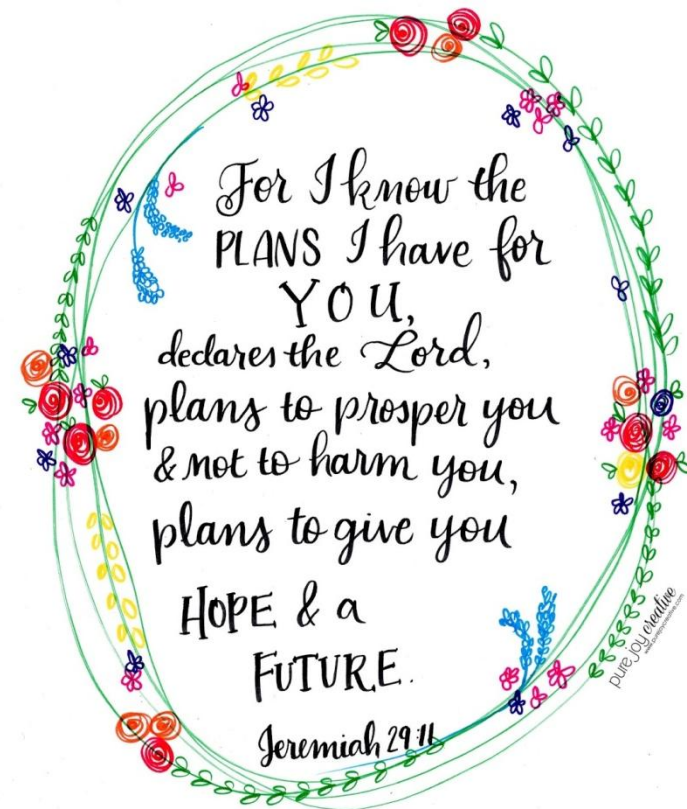 For I know the
PLANS I have for
YOU,
declares the Lord,
plans to prosper you
& not to harm you,
plans to give you
HOPE & a
FUTURE.
Jeremiah 29:11
pure joy creative
www.purejoycreative.com